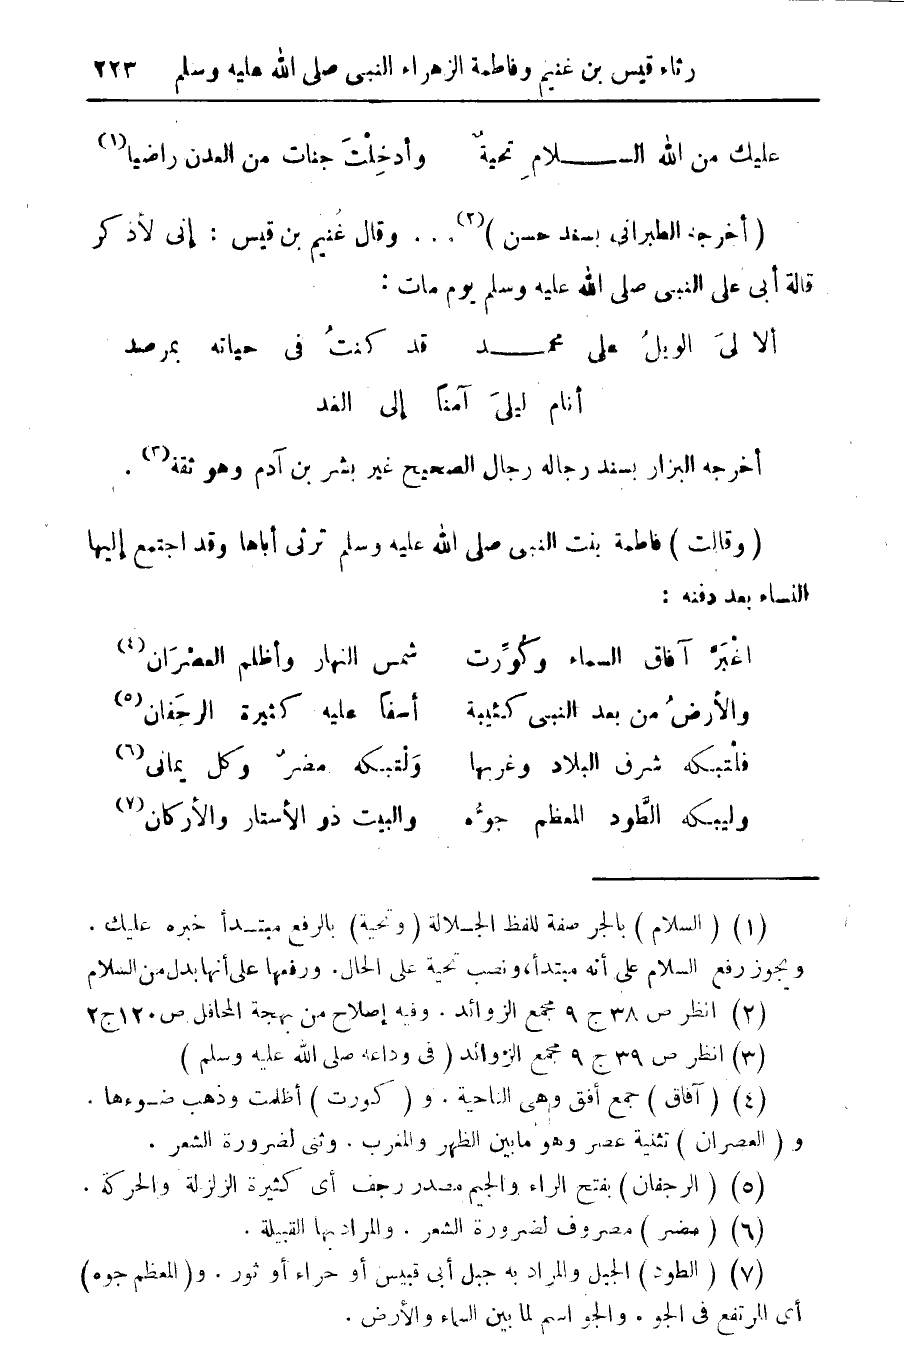 رثاء قيس بن غنيم وفاطمة الزهراء النبى صلى الله عليه وسلم ٢٢٣
عليك من الله الســـــلامِ تحيةٌ وأدخِلْتَ جنات من العدن راضيا(١)
( أخرجه الطبرانى بسند حسن )(٢) ... وقال غُنيم بن قيس : إنى لأذكر
قالة أبى على النبى صلى الله عليه وسلم يوم مات :
ألا لىَ الويلُ على محمـــد قد كنتُ فى حياته بمرصد
أنام ليلىَ آمنًا إلى الغد
أخرجه البزار بسند رجاله رجال الصحيح غير بشر بن آدم وهو ثقة(٣) .
( وقالت ) فاطمة بنت النبى صلى الله عليه وسلم ترثى أباها وقد اجتمع إليها
النساء بعد دفنه :
اغْبَرَّ آفاق السماء وكُوِّرت شمس النهار وأظلم العصْرَان(٤)
والأرضُ من بعد النبى كئيبة أسفًا عليه كثيرة الرجَفان(٥)
فلْتبكه شرق البلاد وغربها وَلْتبكه مضرٌ وكل يمانى(٦)
وليبكه الطَّود المعظم جوُّه والبيت ذو الأستار والأركان(٧)
(١) ( السلام ) بالجر صفة للفظ الجـلالة ( وتحية ) بالرفع مبتـدأ خبره عليك .
ويجوز رفع السلام على أنه مبتدأ، ونصب تحية على الحال. ورفعها على أنها بدل من السلام
(٢) انظر ص ٣٨ ج ٩ مجمع الزوائد . وفيه إصلاح من بهجة المحافل ص ١٢٠ ج ٢
(٣) انظر ص ٣٩ ج ٩ مجمع الزوائد ( فى وداعه صلى الله عليه وسلم )
(٤) ( آفاق ) جمع أفق وهى الناحية . و ( كورت ) أظلمت وذهب ضـوءها .
و ( العصران ) تثنية عصر وهو مابين الظهر والمغرب . وثنى لضرورة الشعر .
(٥) ( الرجفان ) بفتح الراء والجيم مصدر رجف أى كثيرة الزلزلة والحركة .
(٦) ( مضر ) مصروف لضرورة الشعر . والمراد بها القبيلة .
(٧) ( الطود ) الجبل والمراد به جبل أبى قبيس أو حراء أو ثور . و ( المعظم جوه )
أى المرتفع فى الجو . والجو اسم لما بين السماء والأرض .